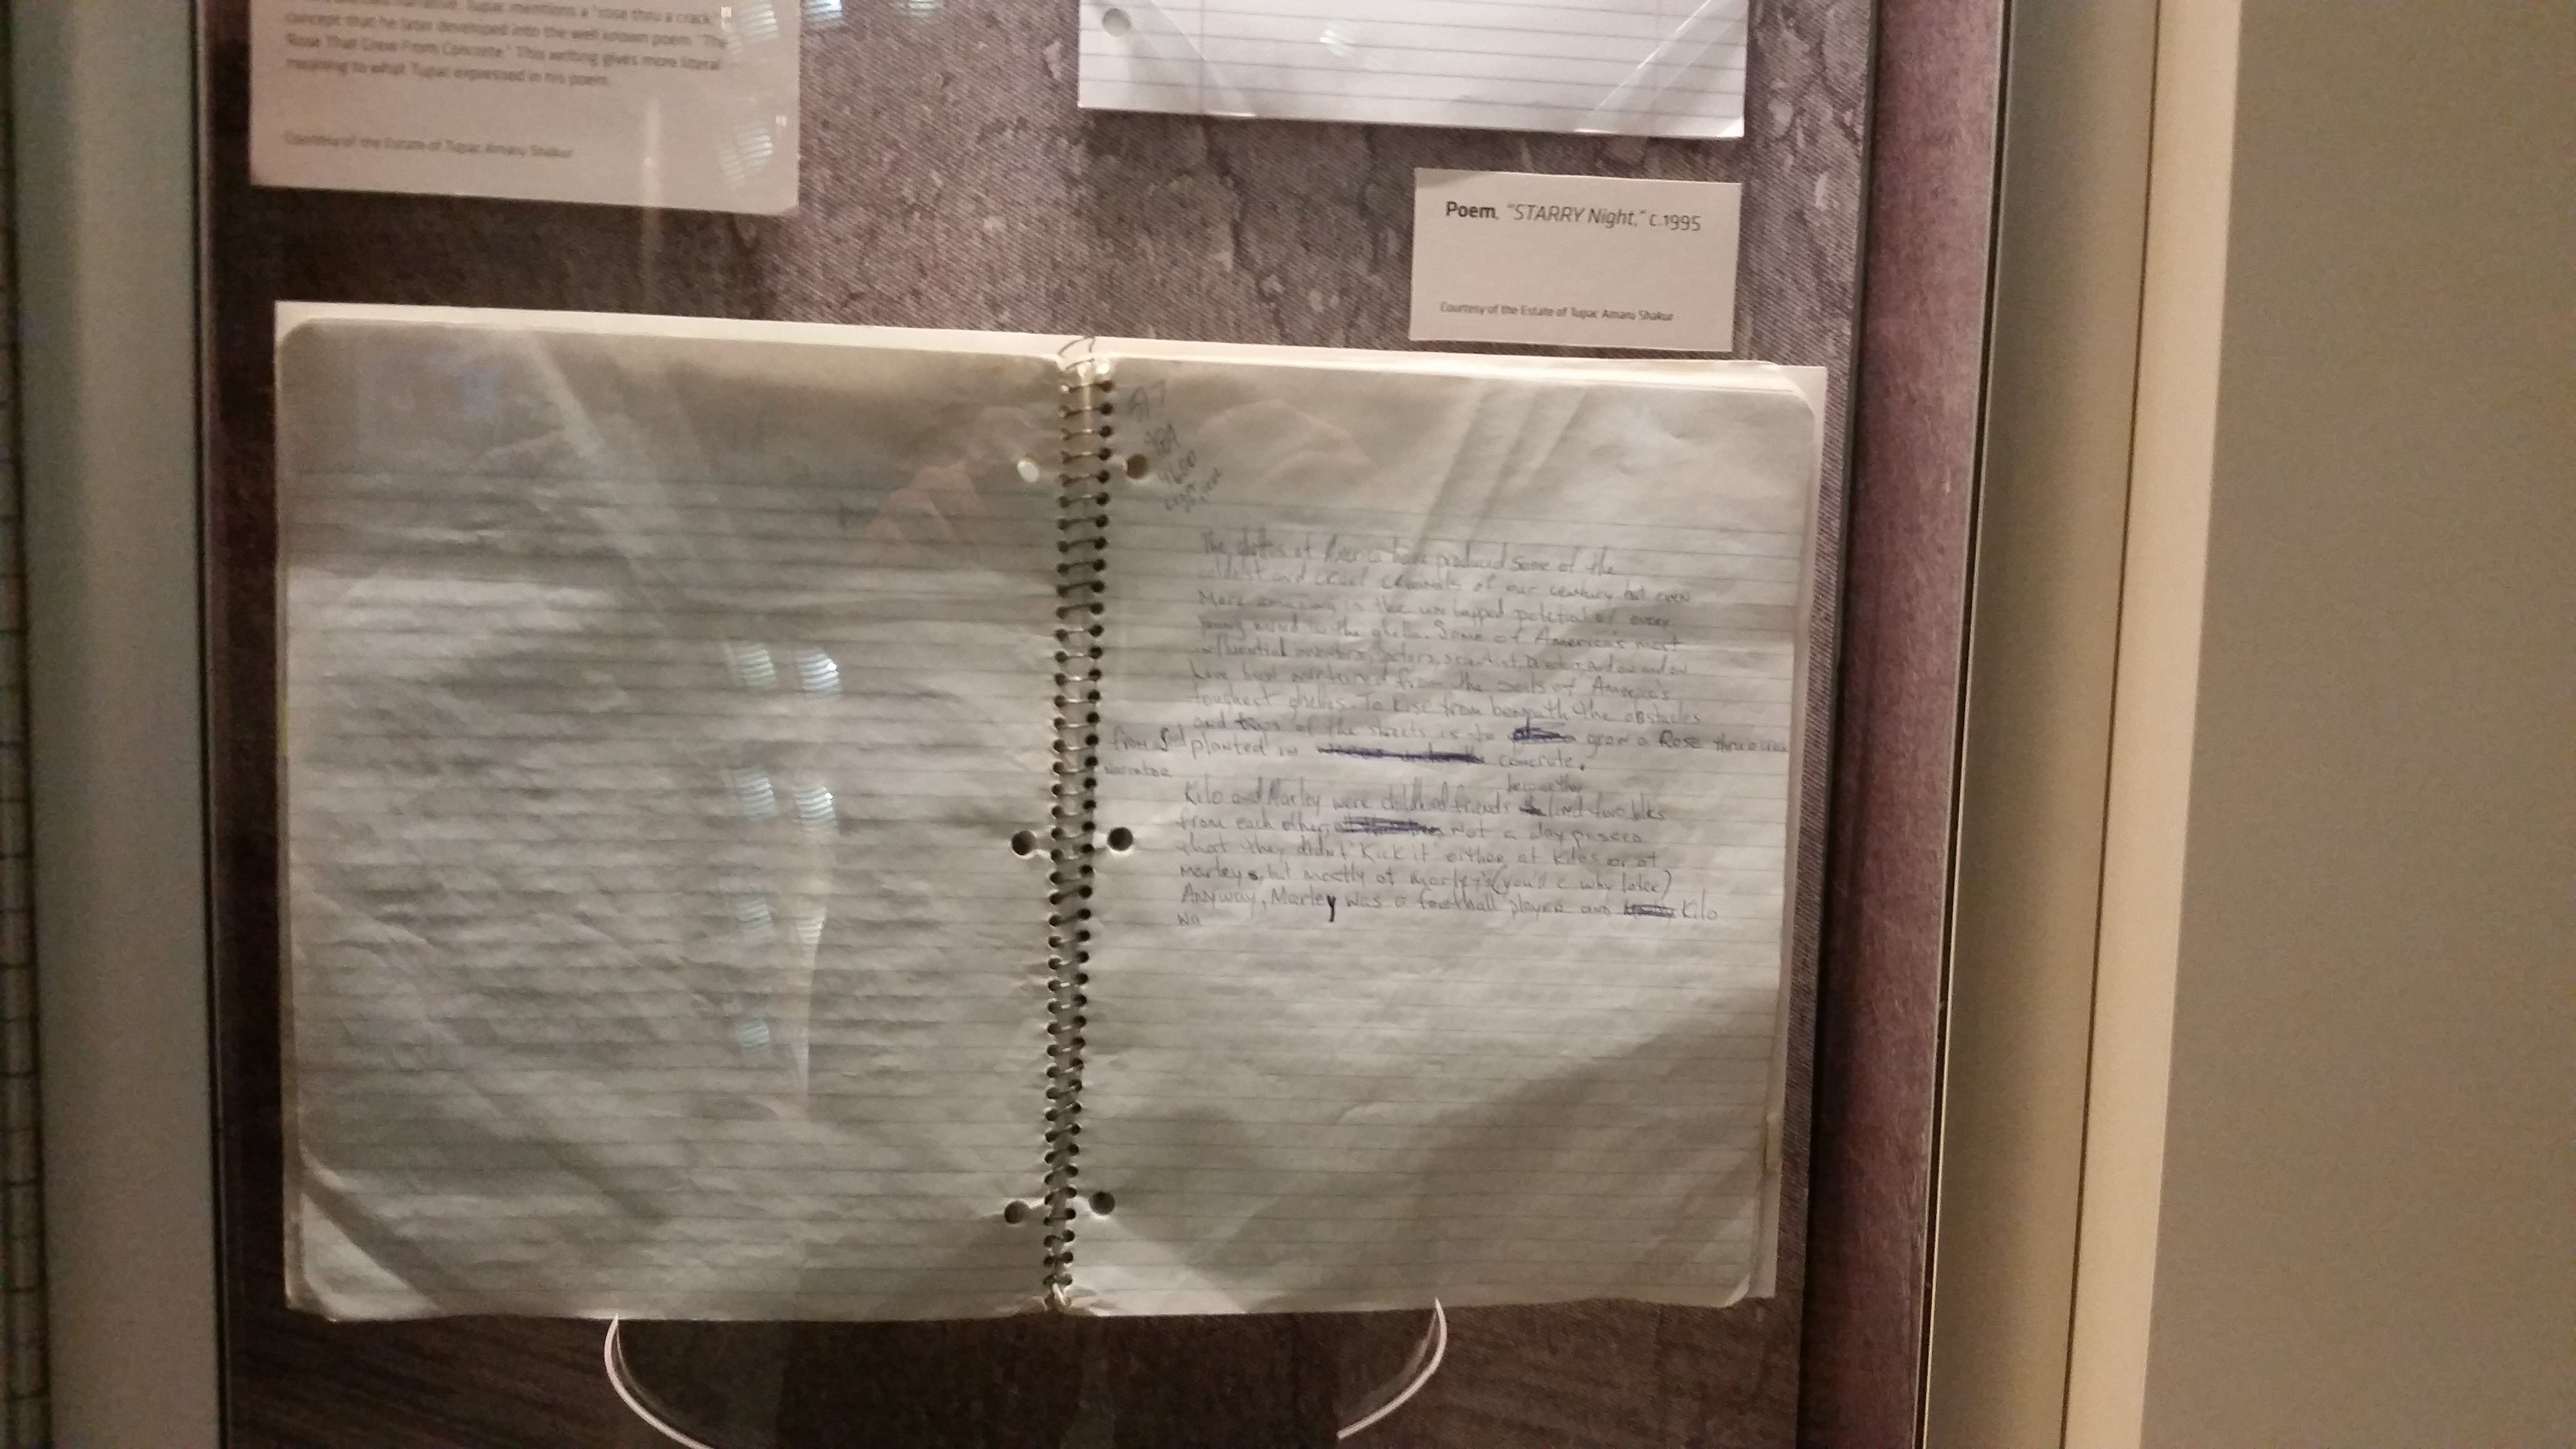 narrative. Tupac mentions a "rose thru a crack,"
concept that he later developed into the well known poem, "The
Rose That Grew From Concrete." This writing gives more literal
meaning to what Tupac expressed in his poem.
Courtesy of the Estate of Tupac Amaru Shakur
Poem, "STARRY Night," c.1995
Courtesy of the Estate of Tupac Amaru Shakur
The ghettos of America have produced some of the
coldest and cruel criminals of our century but even
More amazing is the untapped potetial of every
young mind in the ghetto. Some of America's most
influential inventors, actors, scientist, and on and on
have been nurtured from the soils of America's
toughest ghettos. To Rise from beneath the obstacles
and traps of the streets is to grow a Rose thru a crack
from Seed planted in concrete.
narrator
because they
Kilo and Marley were childhood friends lived two blks
from each other, Not a day passed
that they didn't "Kick it" either at Kilos or at
marleys, but mostly at marley's (you'll c why later)
Anyway, Marley was a football player and Kilo
wa